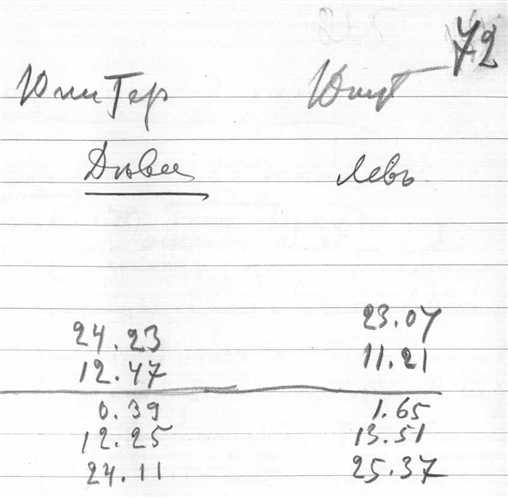 72
Юпитер Юпит
Дѣва Левъ
24.23 23.07
12.47 11.21
0.39 1.65
12.25 13.51
24.11 25.37